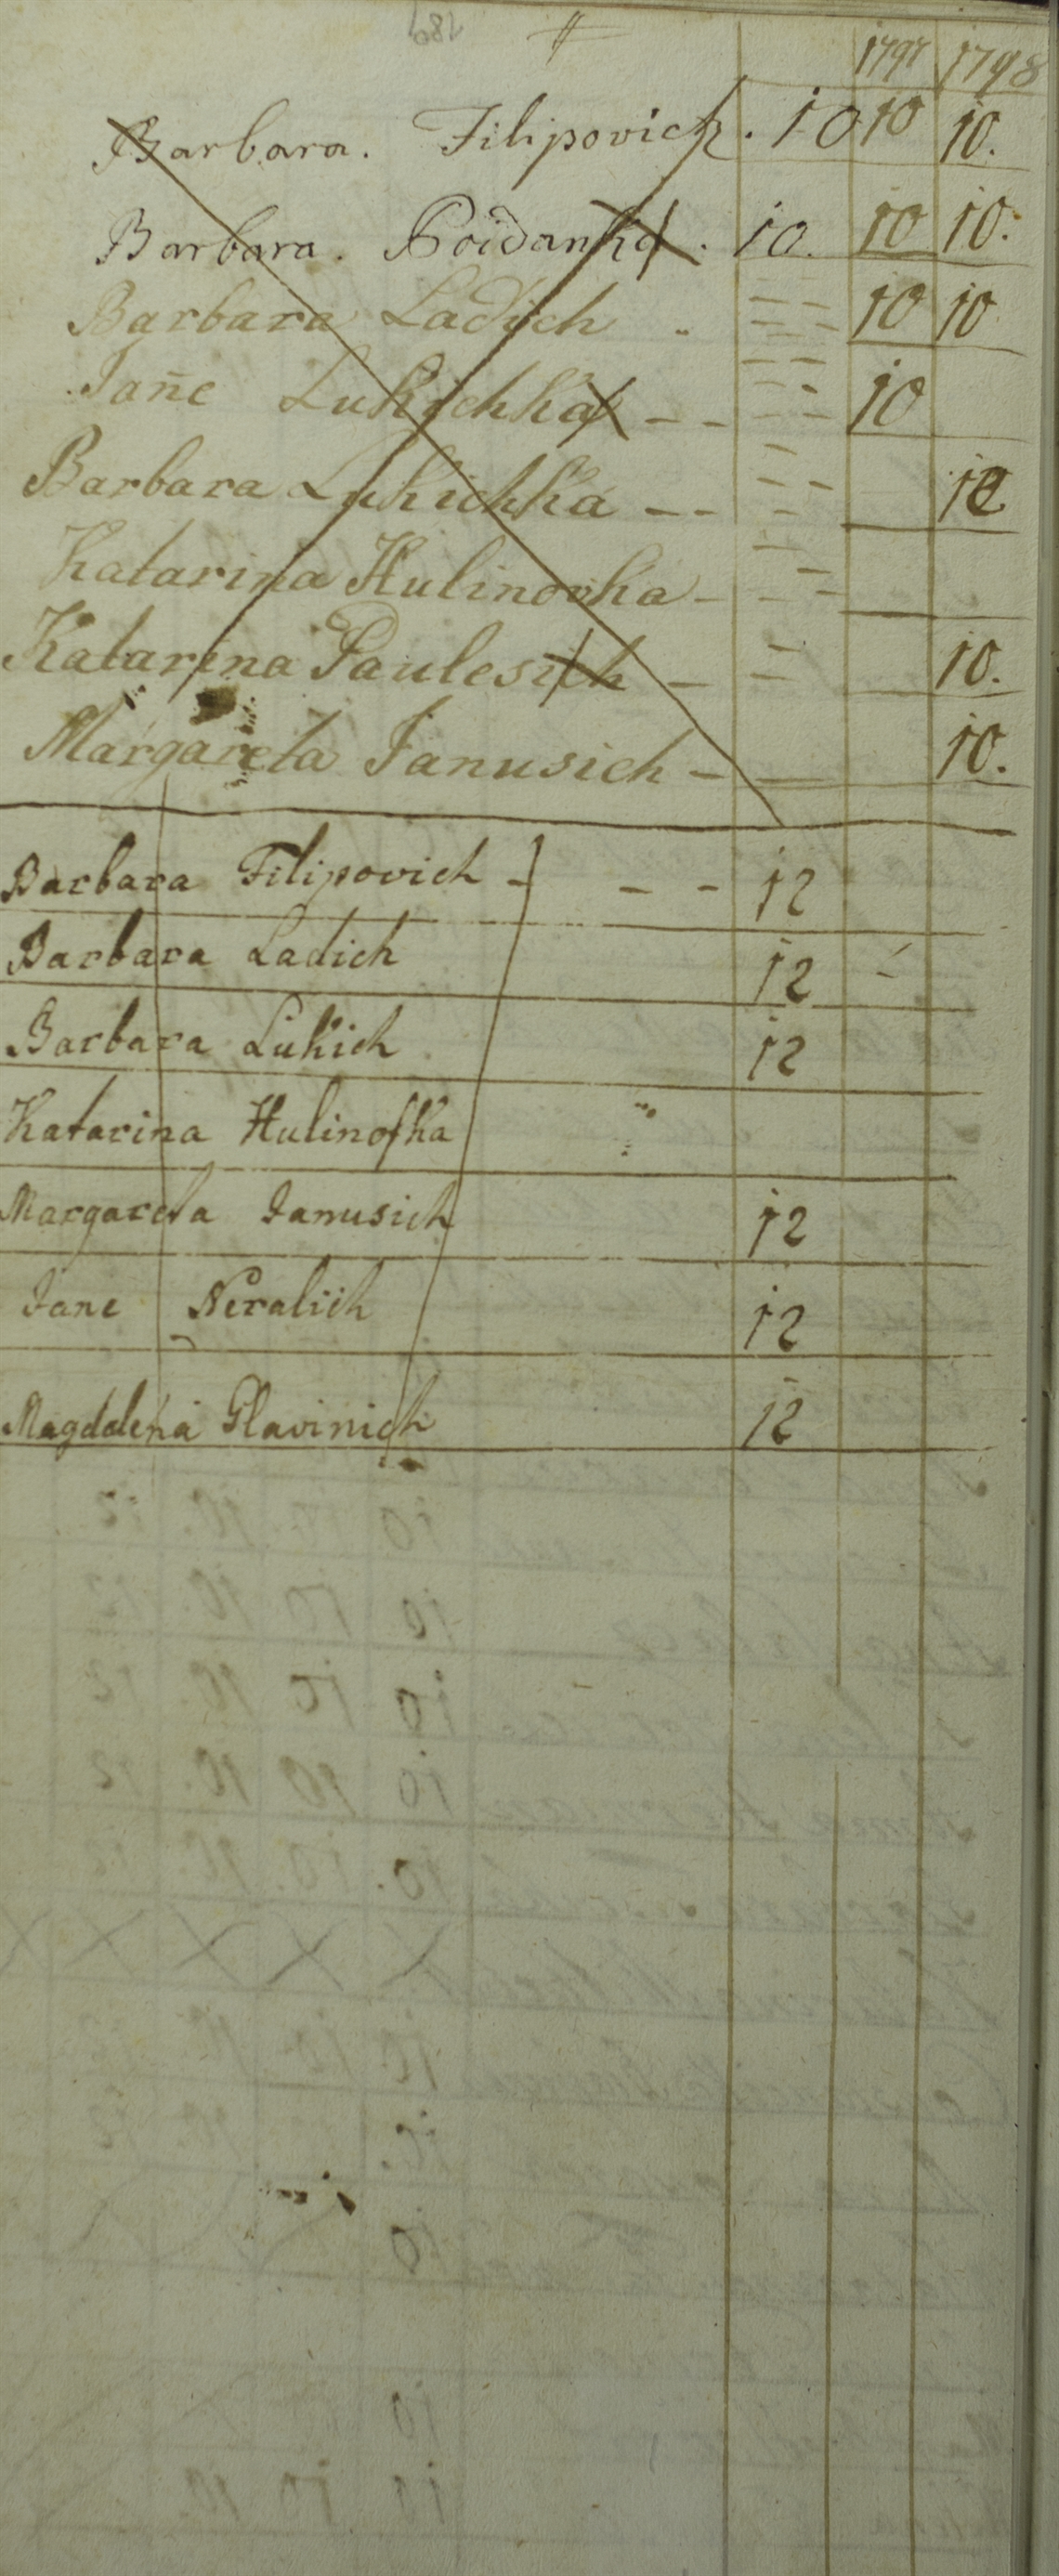 1797 1798
Barbara. Filipovich. 10 10 10.
Barbara. Boidanka. 10. 10 10.
Barbara Ladich 10 10
Jañe Lukichka - - 10
Barbara Lukichka - - 10
Katarina Hulinovka -
Katarina Paulesich - 10.
Margareta Janusich - 10.
Barbara Filipovich - - - 12
Barbara Ladich 12
Barbara Lukich 12
Katarina Hulinofka
Margareta Janusich 12
Jane Neralich 12
Magdalena Glavinich 12